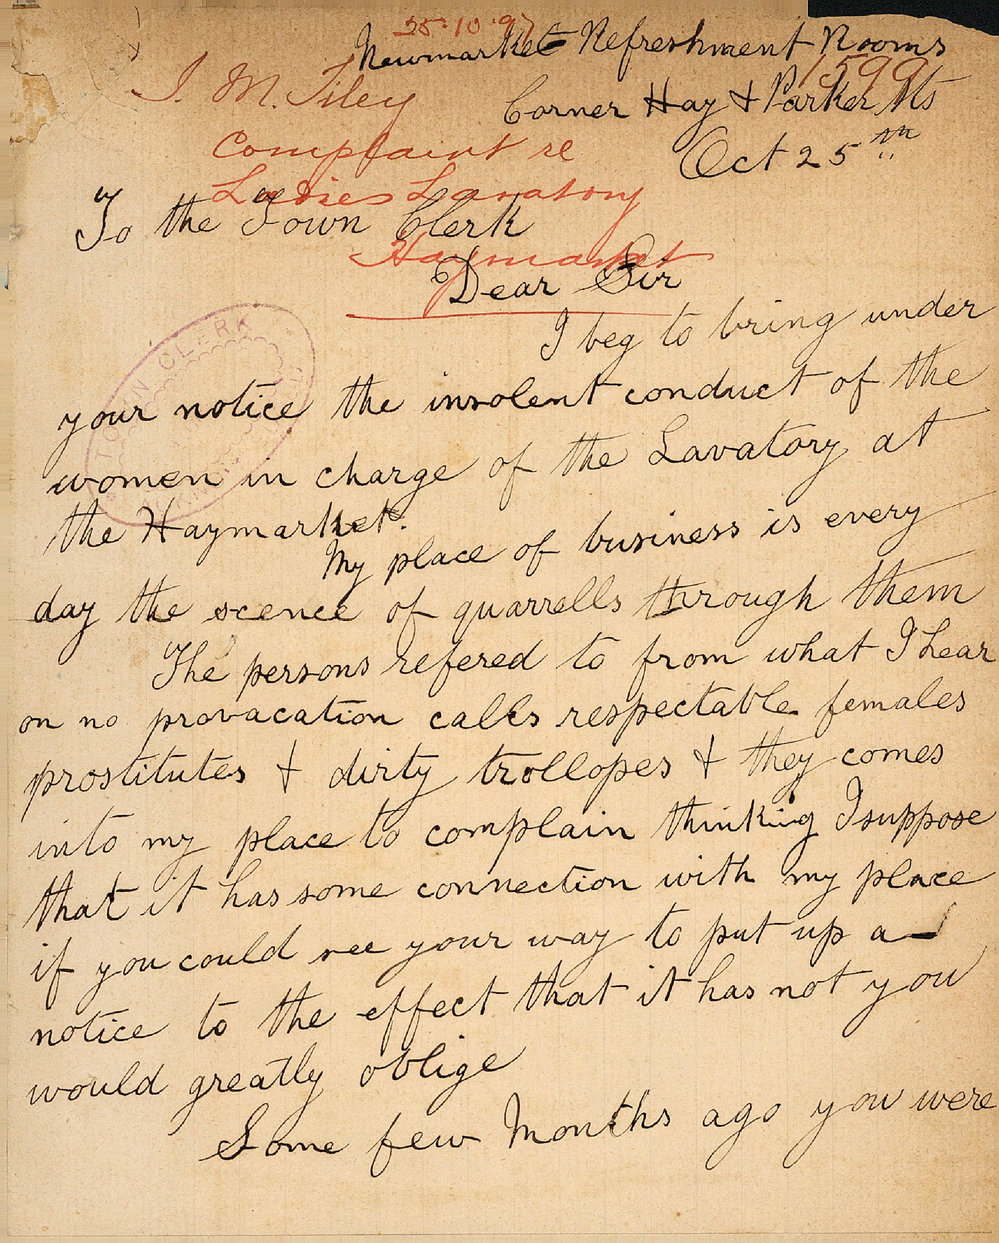 25.10.97
Newmarket Refreshment Rooms
1599
J. M. Tiley
Corner Hay & Parker Sts
Complaint re
Oct 25th
Ladies Lavatory
To the Town Clerk
Haymarket
Dear Sir
TOWN CLERK
I beg to bring under
your notice the insolent conduct of the
women in charge of the Lavatory at
the Haymarket.
My place of business is every
day the scence of quarrells through them
The persons refered to from what I hear
on no provacation calls respectable females
prostitutes & dirty trollopes & they comes
into my place to complain thinking I suppose
that it has some connection with my place
if you could see your way to put up a
notice to the effect that it has not you
would greatly oblige
Some few Months ago you were